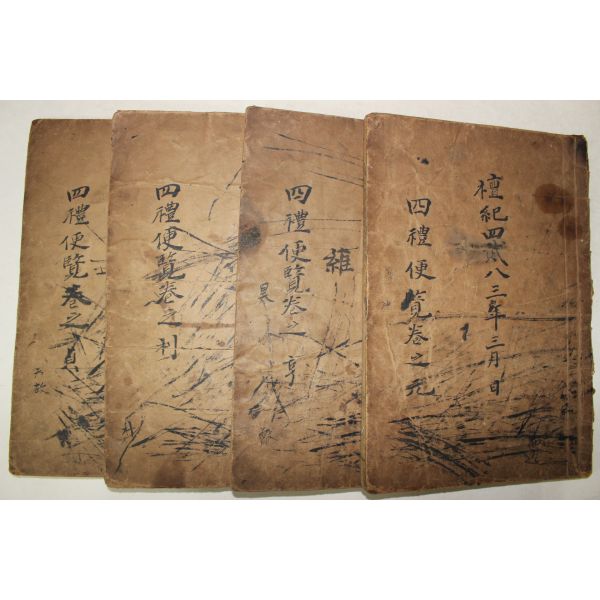 檀紀四貳八三年三月日
四禮便覽卷之元
四禮便覽卷之亨
四禮便覽卷之利
四禮便覽卷之貞